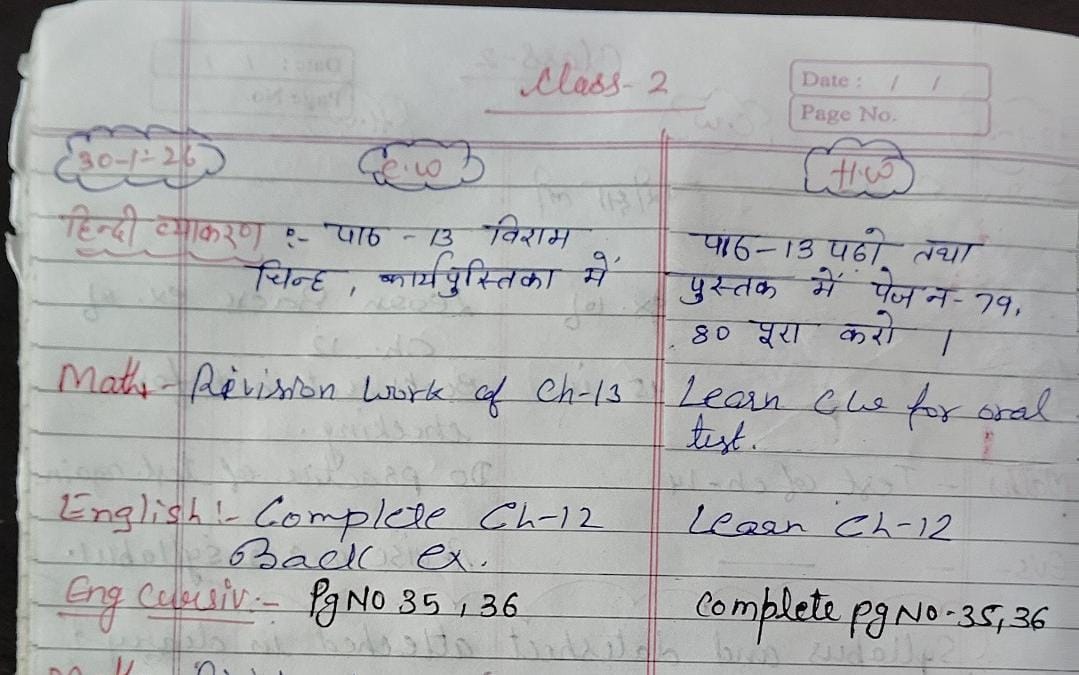 Class-2
Date : / /
Page No.
30-1-26
C.W
H.W
हिन्दी व्याकरण :- पाठ - 13 विराम
चिन्ह , कार्यपुस्तिका में
पाठ-13 पढो तथा
पुस्तक में पेज न- 79,
80 पूरा करो ।
Maths - Revision work of Ch-13
Learn CW for oral
test.
English :- Complete Ch-12
Back ex.
Learn Ch-12
Eng Cursiv:- Pg NO 35, 36
Complete pg NO-35, 36